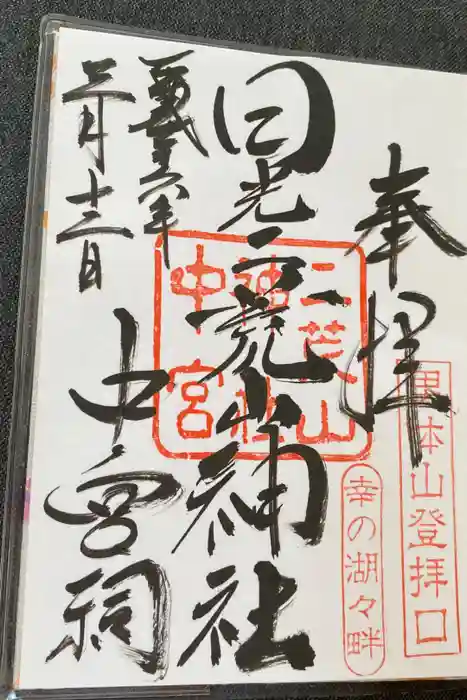 奉拝
男体山登拝口
幸の湖々畔
日光二荒山神社
二荒山
神社
中宮
中宮祠
月十三日